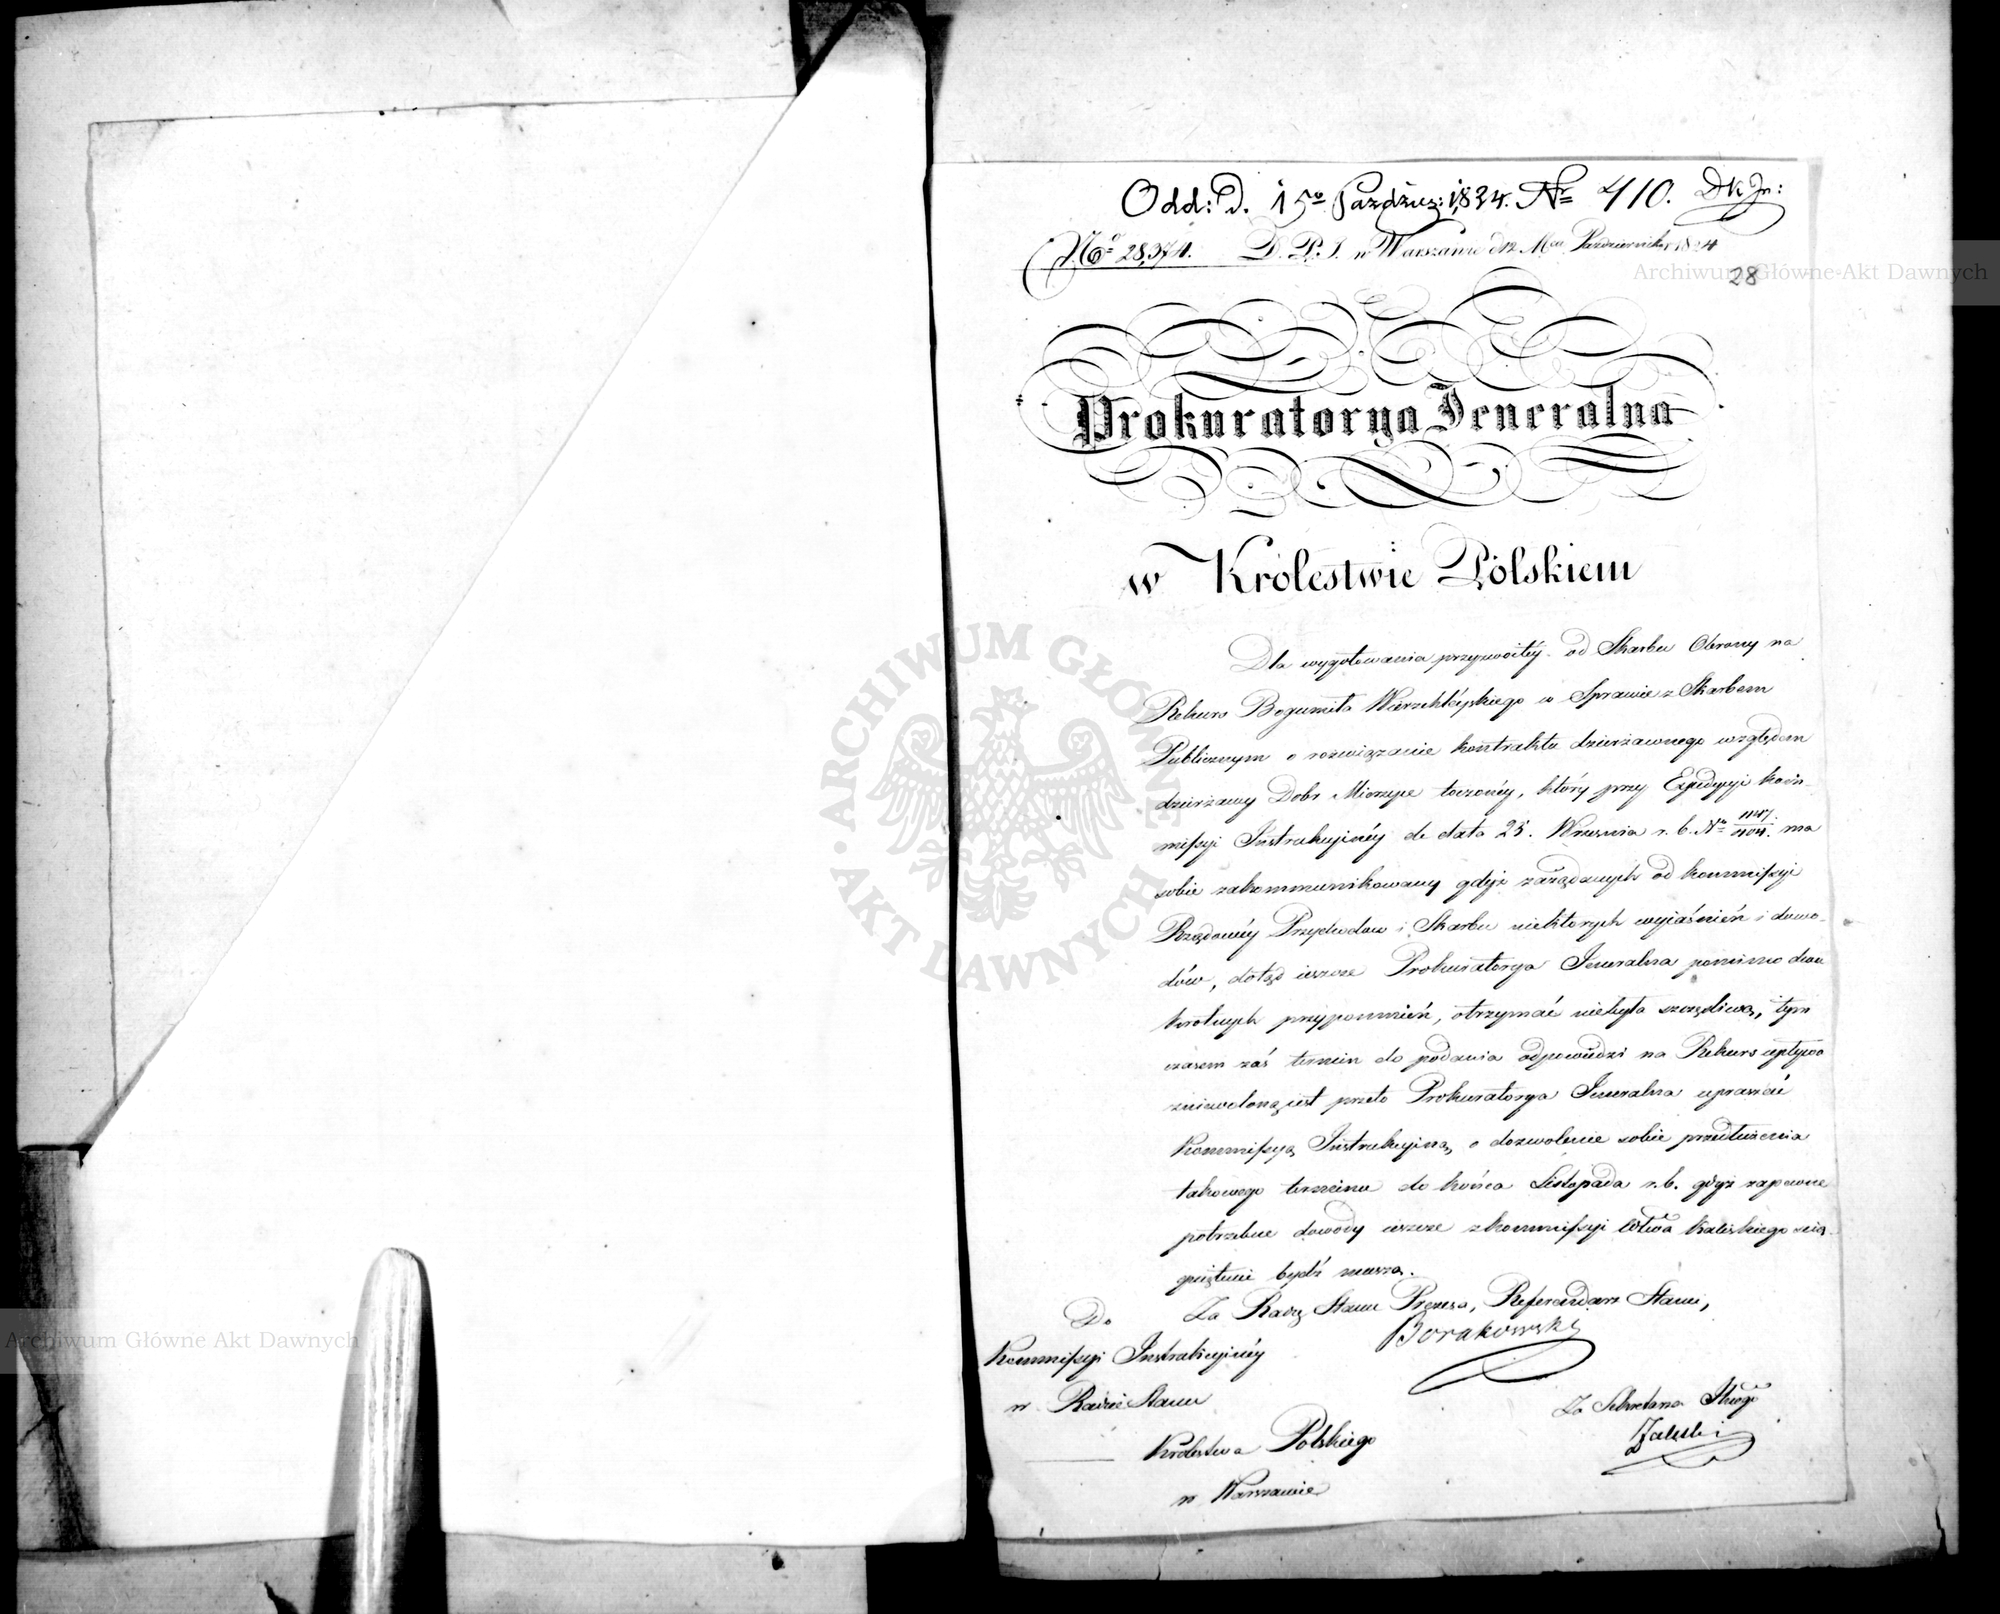 Odd: D. 15º Paźdźer: 1824. Nr 410. DkJn:
Nº 28,374. D. P. J. w Warszawie d 12 Mca Październik 1824
28
Prokuratorya Jeneralna
w Królestwie Polskiem
Dla wygotowania przyzwoitéy od Skarbu Obrony na
Rekurs Bogumiła Wierzchleyskiego w Sprawie z Skarbem
Publicznym o rozwiązanie kontraktu dzierżawnego względem
dzierżawy Dobr toczonéy, który przy Expedycyi Kom-
missyi Instrukcyinéy de dato 25. Września r. b. Nº ma
sobie zakommunikowany gdyż zażądanych od Kommissyi
Rządowéy Przychodow i Skarbu niektorych wyjaśnień i dowo-
dów, dotąd ieszcze Prokuratorya Jeneralna pomimo dwu
krotnych przypomnień, otrzymać niebyła szczęśliwą, tym
czasem zaś termin do podania odpowiedzi na Rekurs upływa
zniewoloną iest przeto Prokuratorya Jeneralna upraszać
Kommissyą Instrukcyiną o dozwolenie sobie przedłużenia
takowego terminu do końca Listopada r. b. gdyż zapewne
potrzebne dowody ieszcze z Kommissyi Wdtwa Kaliskiego scią-
gnięte bydź muszą.
Za Radcę Stanu Prezesa, Referendarz Stanu,
Borakowski
Do
Kommissyi Instrukcyinéy
w Radzie Stanu
Królestwa Polskiego
w Warszawie
Za Sekretarza
Zaleski
ARCHIWUM GŁÓWNE AKT DAWNYCH
Archiwum Główne Akt Dawnych
Archiwum Główne Akt Dawnych